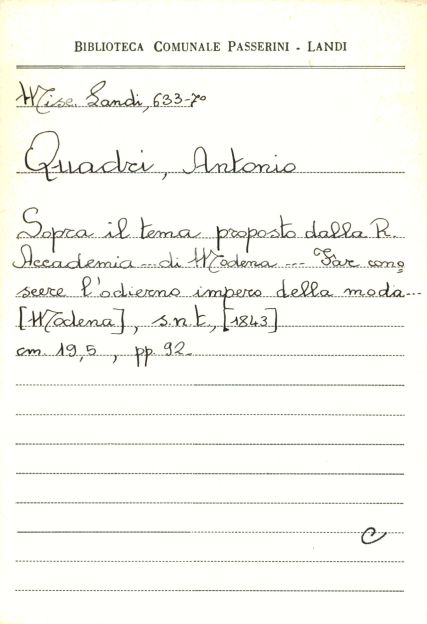 BIBLIOTECA COMUNALE PASSERINI - LANDI
Misc. Landi, 633-7º
Quadri, Antonio
Sopra il tema proposto dalla R.
Accademia ... di Modena ... Far cono=
scere l'odierno impero della moda...
[Modena], s.n.t, [1843]
cm. 19,5, pp. 92.
C